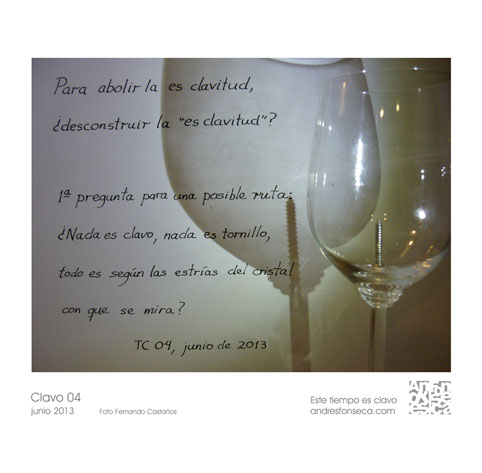 Para abolir la es clavitud,
¿desconstruir la "es clavitud"?
1ª pregunta para una posible ruta:
¿Nada es clavo, nada es tornillo,
todo es según las estrías del cristal
con que se mira?
TC 04, junio de 2013
Clavo 04
junio 2013 Foto Fernando Castaños
Este tiempo es clavo
andresfonseca.com